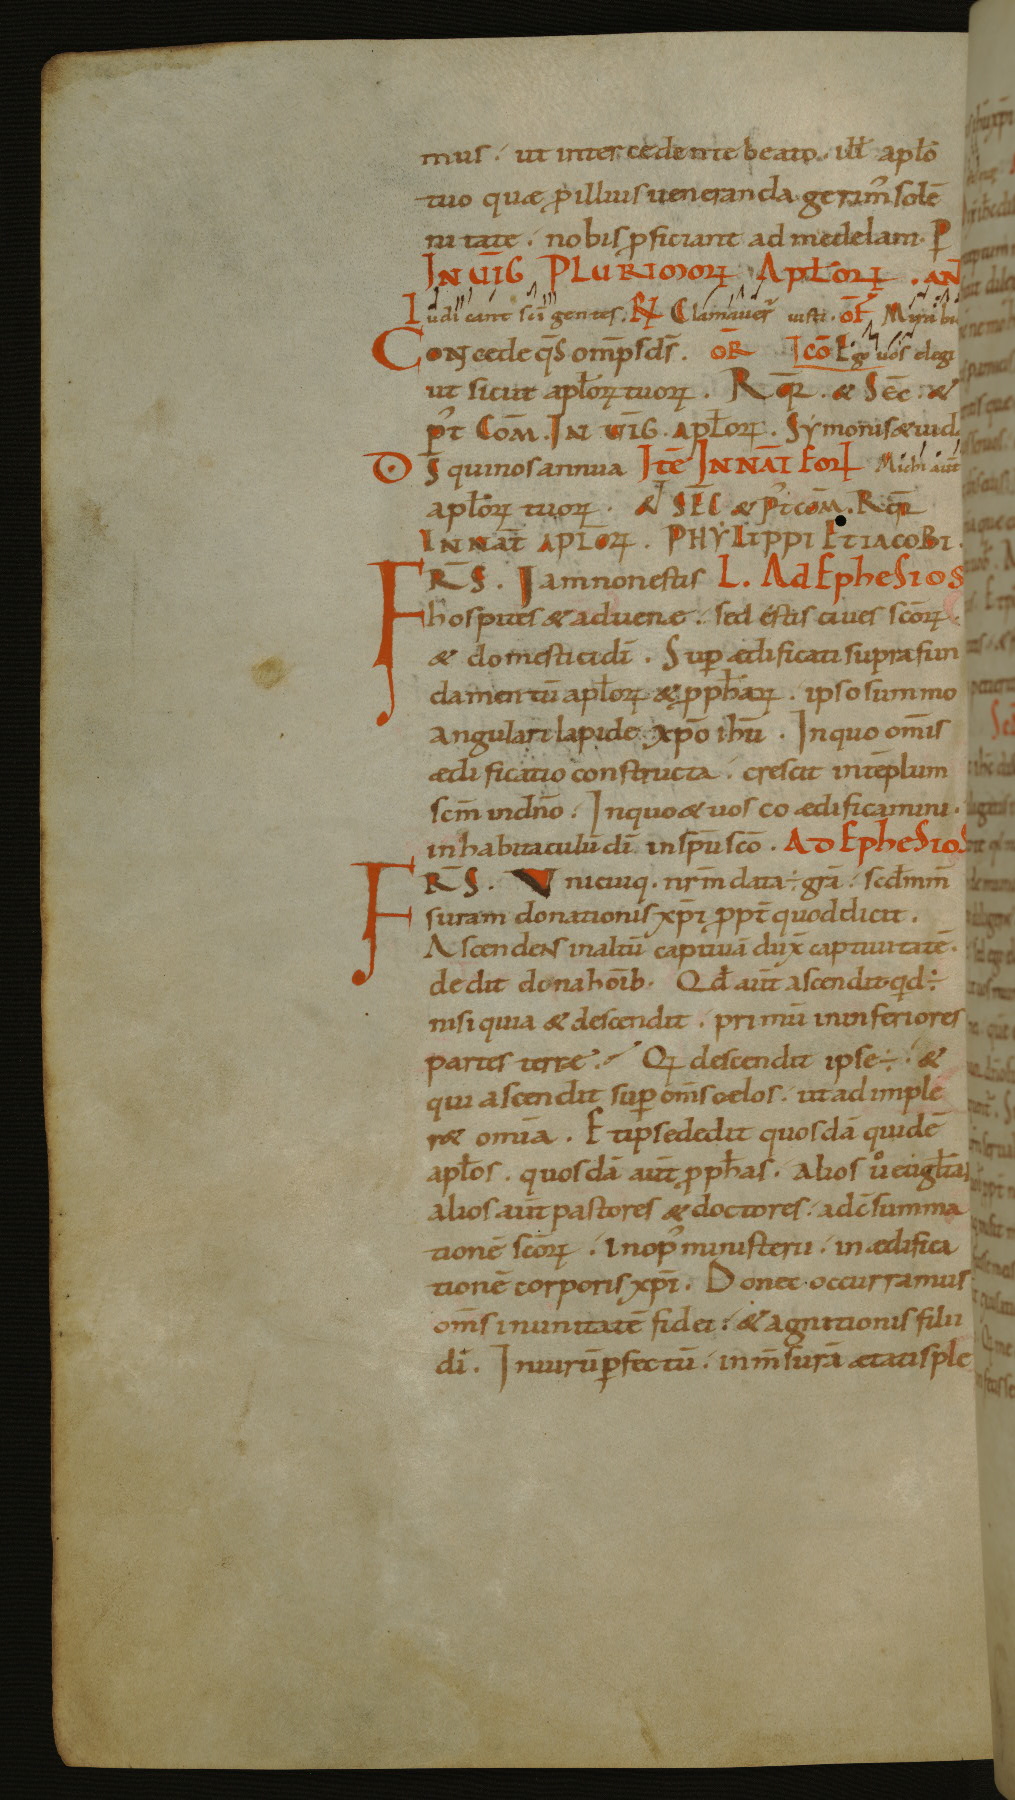 mus · ut intercedente beato · ill̄ apl̄o
tuo quæ p̄ illius ueneranda gerim᷑ solē
nitate · nobis ꝓficiant ad medelam · P
IN UIḠ PLURIMORꝜ APL̄ORꝜ · AÑ
Iudicant sc̄i gentes · R̄ Clamauer̄ iusti · OF̄ Mirabi
Concede q̄s om̄ps d̄s · OR̄ CŌ Ego uos elegi
ut sicut apl̄orꝝ tuorꝝ · Reqr̄ · & Sēc · &
p᷑t Cōm · IN UIḠ · APL̄orꝝ · Symonis & iud
D̄s qui nos annua Itē IN NAT̄ Eorꝝ Michi aut̄
apl̄orꝝ tuorꝝ · & SĒC & p᷑t cōm · Reqr̄
IN NAT̄ APL̄ORꝜ · PHYLIPPI ET IACOBI ·
FR̄S · Iam non estis L · Ad EpheSioS
hospites & aduene · sed éstis ciues sc̄orꝝ ·
& domestici dī · Sup̄ ædificati supra fun
damentū apl̄orꝝ & ꝓph̄arꝝ · ipso summo
angulari lapide xp̄o ih̄u · In quo om̄is
ædificatio constructa · crescit in tēplum
sc̄m in dn̄o · In quo & uos coædificamini ·
in habitaculū dī in sp̄u sc̄o · AD EpheSioS
FR̄S · Unicuiq· nr̄m data ÷ gr̄a · scd̄m m̄
suram donationis xp̄i ꝓpt̄ quod dicit ·
Ascendens in altū captiuā dux̄ captiuitatē ·
dedit dona hoīb· Qd̄ aut̄ ascendit · qd ÷
nisi quia & descendit · primū in inferiores
partes terre · Qꝫ descendit ipse ÷ · &
qui ascendit sup̄ om̄s celos · ut adimple
r& omīa · Et ipse dedit quosdā quidē
apl̄os · quosdā aut̄ ꝓph̄as · alios u᷑o eugl̄tas
alios aut̄ pastores & doctores · ad c̄summa
tionē sc̄orꝝ · in op᷑ ministerii · in ædifica
tionē corporis xp̄i · Donec occurramus
om̄s in unitatē fidei · & agnitionis filii
dī · In uirū ꝑfectū · in m̄surā ætatis ple